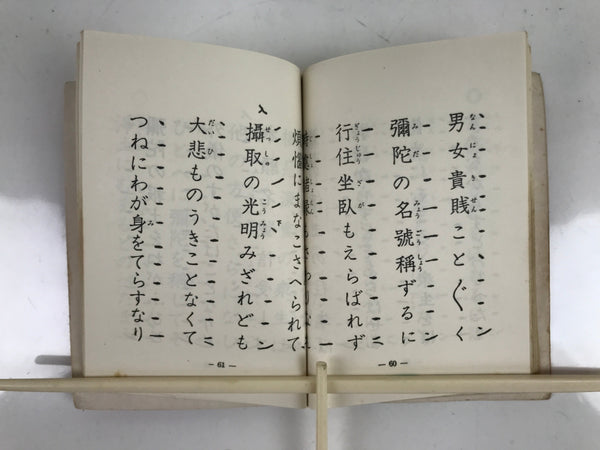 男女貴賤こと〲く
彌陀の名號稱ずるに
行住坐臥もえらばれず
— 60 —
煩惱にまなこさへられて
攝取の光明みざれども
大悲ものうきことなくて
つねにわが身をてらすなり
— 61 —